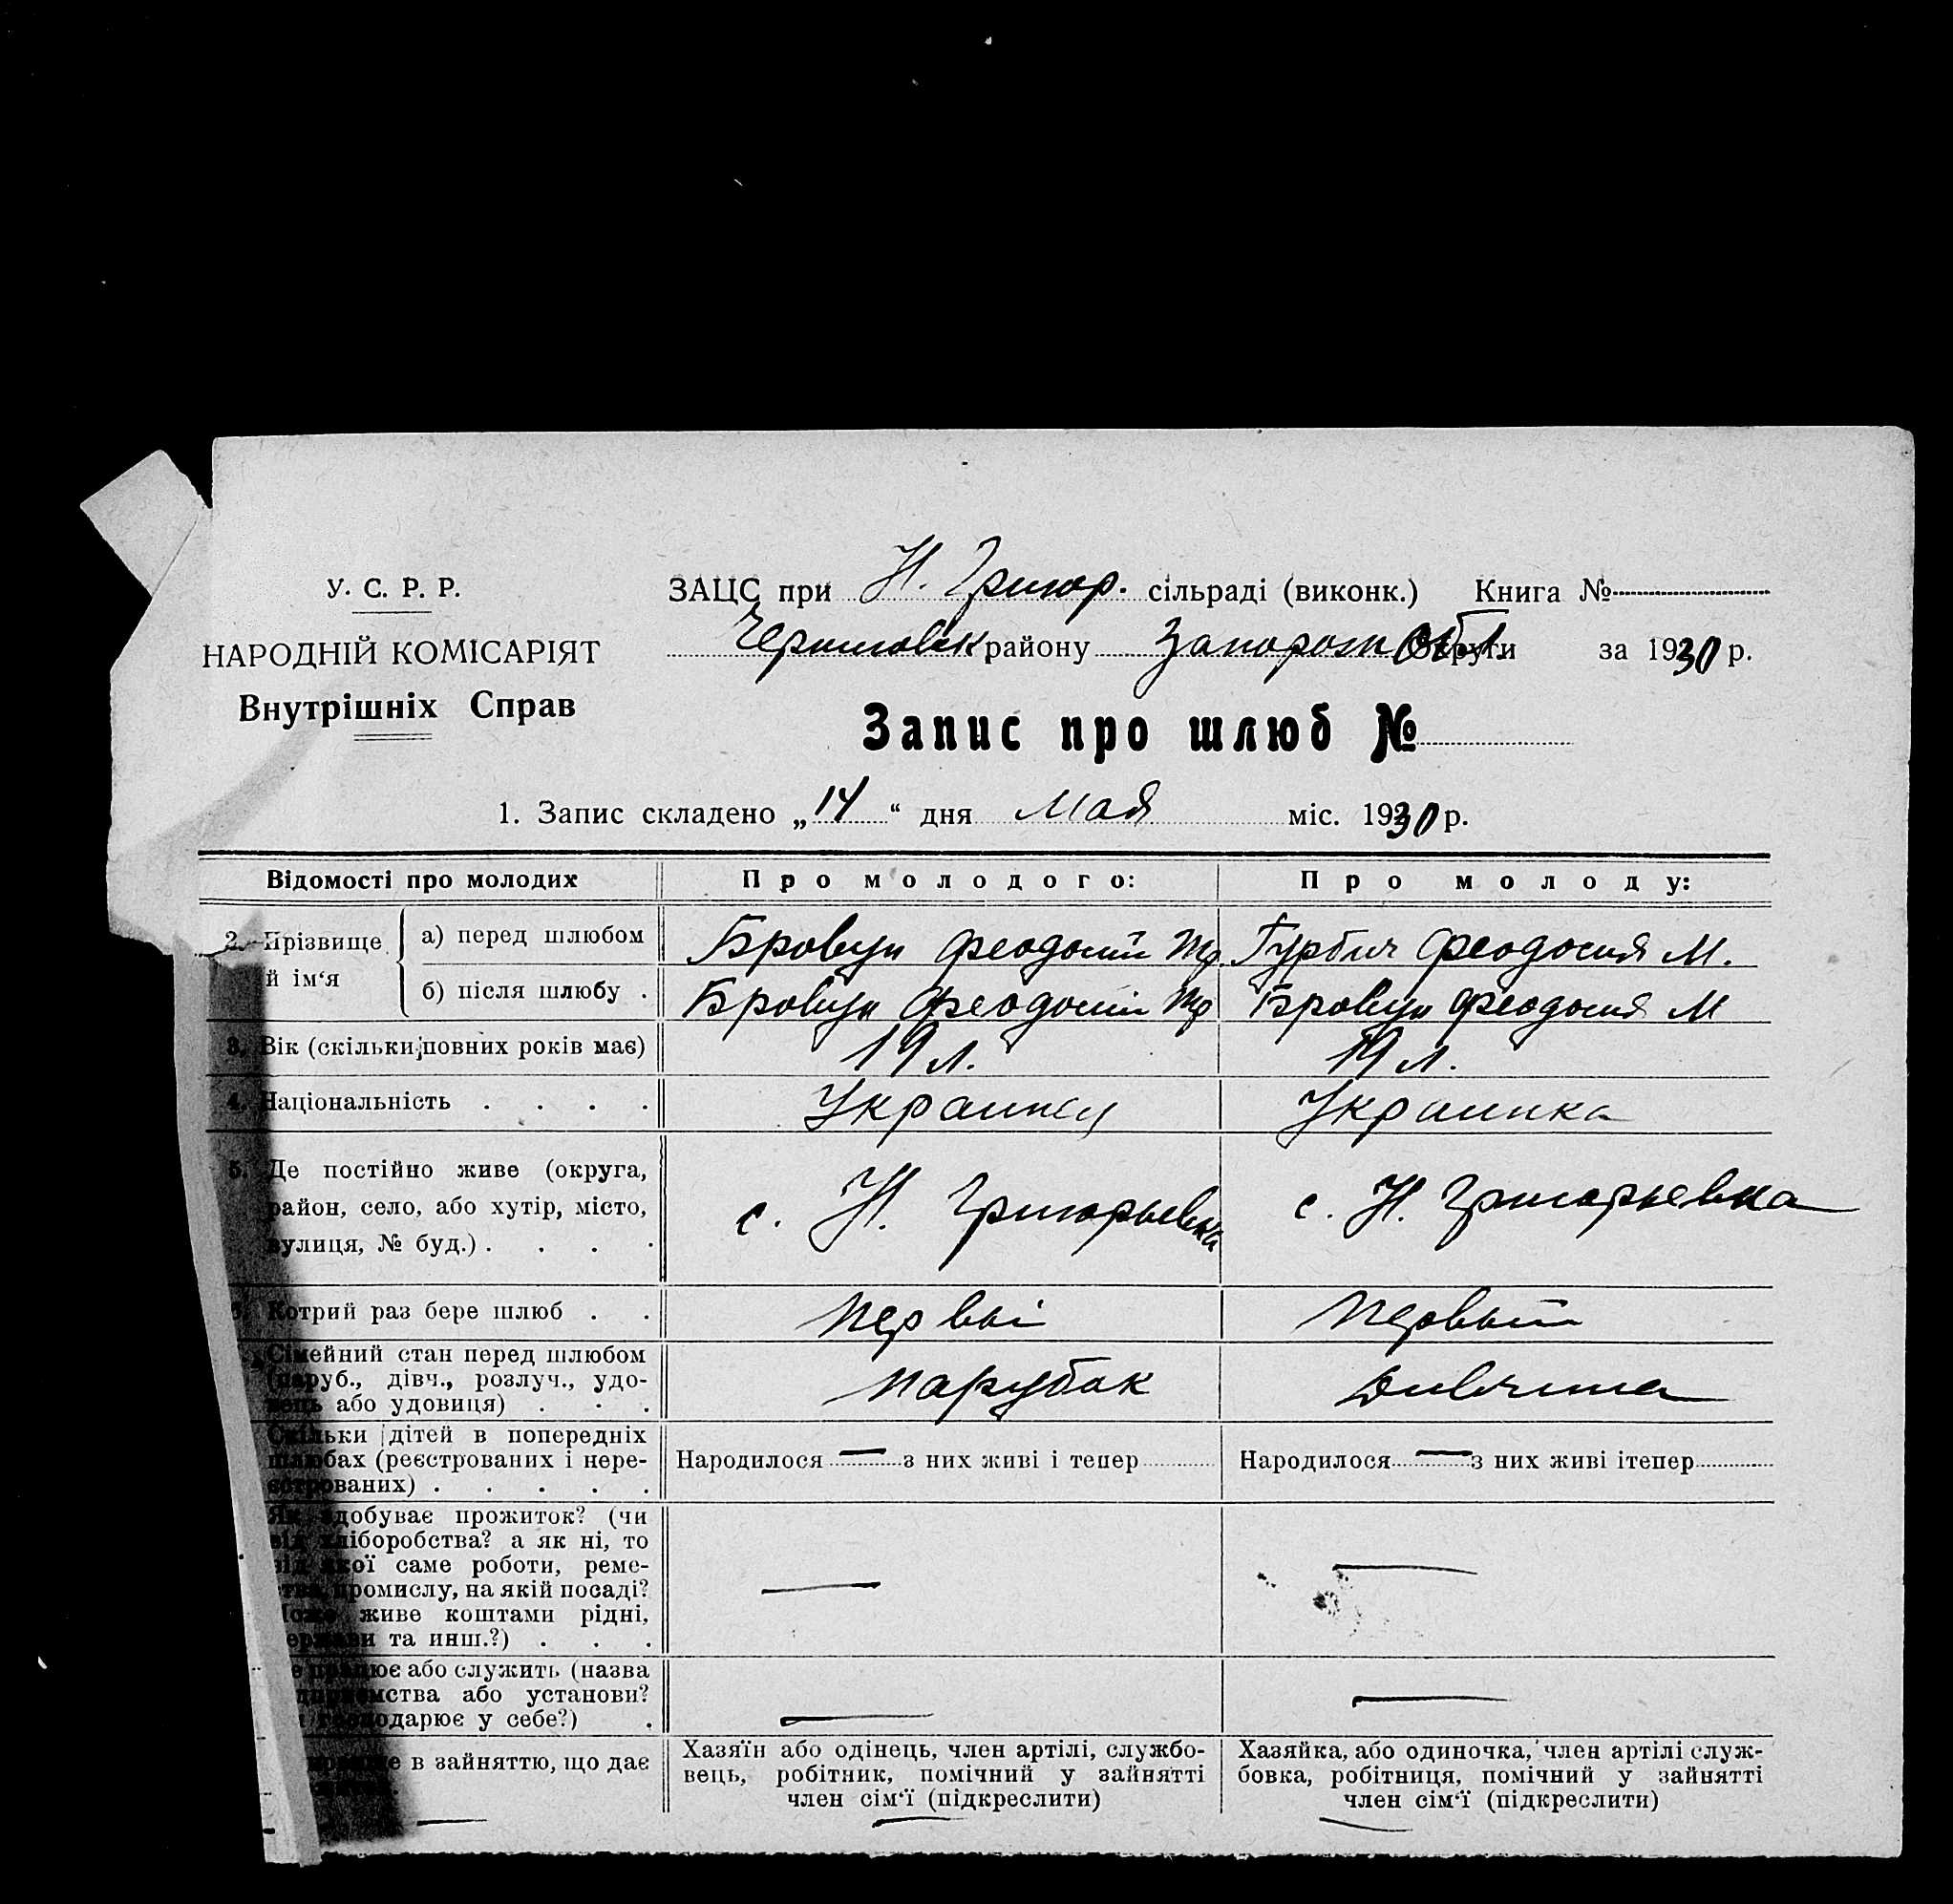 У. С. Р. Р.
НАРОДНІЙ КОМІСАРІЯТ
Внутрішніх Справ
ЗАЦС при Н. Григор. сільраді (виконк.) Книга №
району Запорож округи за 1930 р.
Запис про шлюб №
1. Запис складено „14“ дня Мая міс. 1930 р.
Відомості про молодих Про молодого: Про молоду:
2. Прізвище й ім‘я
а) перед шлюбом Бровун Феодосий Тр. Гурбич Феодосия М.
б) після шлюбу . Бровун Феодосий Тр Бровун Феодосия М
3. Вік (скільки повних років має) 19 л. 19 л.
4. Національність . . . . Украинец Украинка
5. Де постійно живе (округа,
район, село, або хутір, місто,
вулиця, № буд.) . . . .
с. Н. Григорьевка с. Н. Григорьевка
Котрий раз бере шлюб . . Первыі Первый
Сімейний стан перед шлюбом
(паруб., дівч., розлуч., удо-
вець або удовиця) . . .
Парубок Дивчина
Скільки дітей в попередніх
шлюбах (реєстрованих і нере-
єстрованих) . . . . .
Народилося — з них живі і тепер Народилося — з них живі ітепер
Як здобуває прожиток? (чи
від хліборобства? а як ні, то
від якої саме роботи, реме-
ства, промислу, на якій посаді?
Може живе коштами рідні,
держави та инш.?) . . .
— —
Де працює або служить (назва
підприємства або установи?
господарює у себе?) .
— —
в зайняттю, що дає
—
Хазяїн або одінець, член артілі, службо-
вець, робітник, помічний у зайнятті
член сім‘ї (підкреслити)
Хазяйка, або одиночка, член артілі служ-
бовка, робітниця, помічний у зайнятті
член сім‘ї (підкреслити)